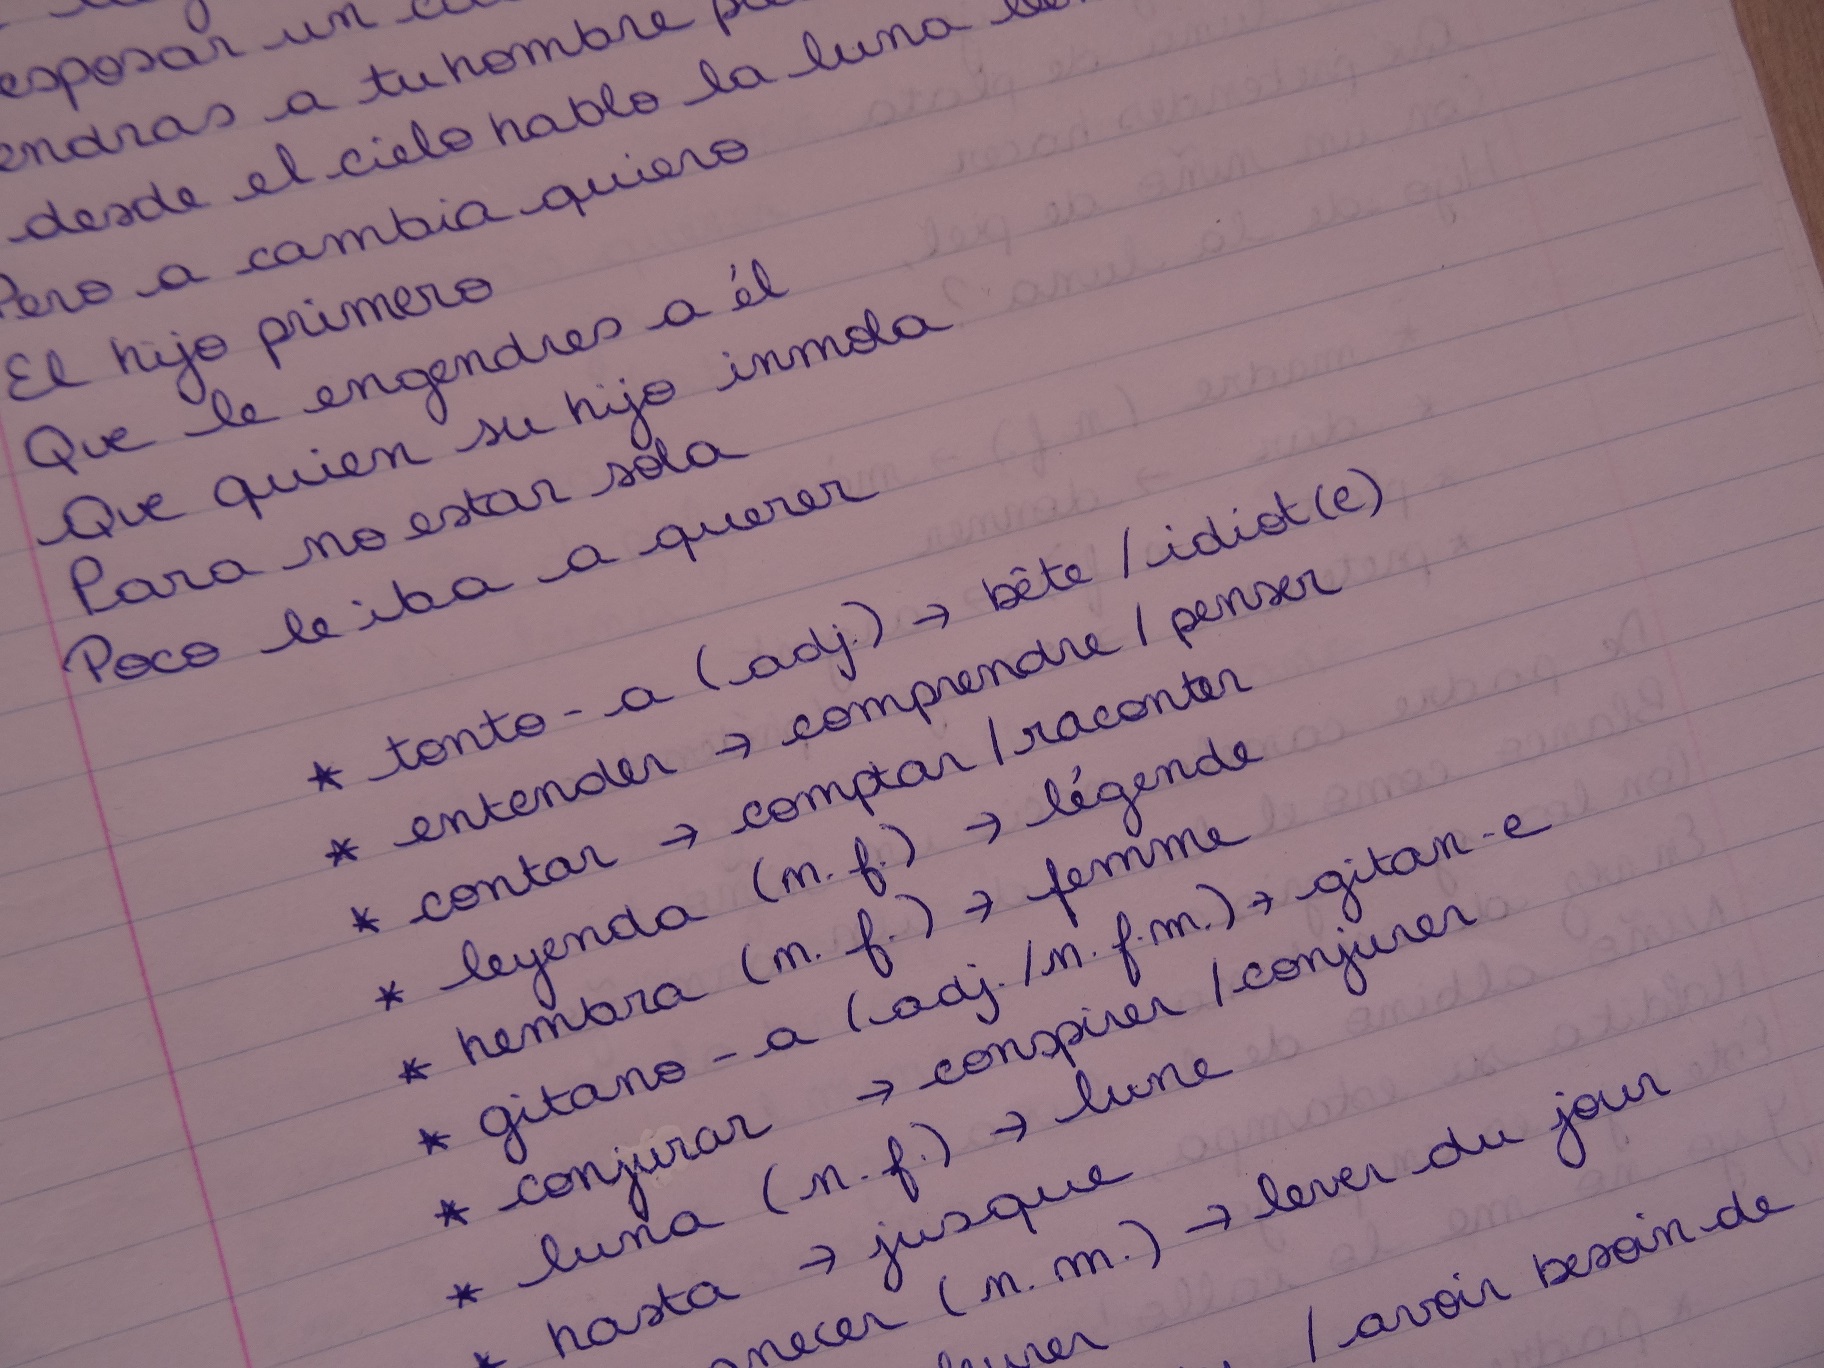 esposar un
endras a tu hombre
desde el cielo hablo la luna
Pero a cambia quiero
El hijo primero
Que le engendres a él
Que quien su hijo inmola
Para no estar sola
Poco le iba a querer
* tonto - a (adj.) → bête / idiot(e)
* entender → comprendre / penser
* contar → comptar / raconter
* leyenda (n. f.) → légende
* hembra (n. f.) → femme
* gitano - a (adj. / n. f. m.) → gitan - e
* conjurar → conspirer / conjurer
* luna (n. f.) → lune
* hasta → jusque
necer (n. m.) → lever du jour
/ avoir besoin de